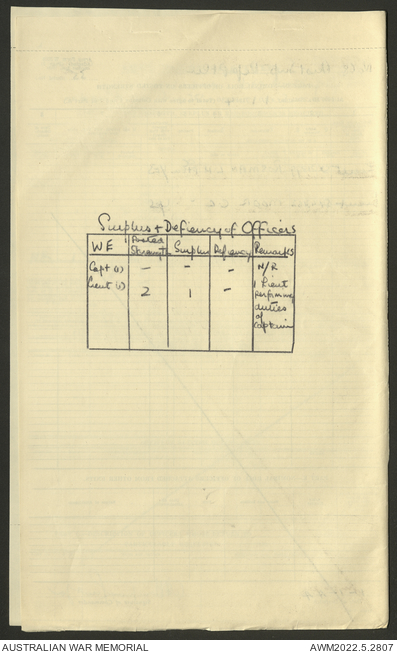 Surplus & Defiency of Officers
WE Posted Strength Surplus Defiency Remarks
Capt (1) - - - N/R
Lieut (1) 2 1 - 1 Lieut
performing
duties
of
Captain
AUSTRALIAN WAR MEMORIAL
AWM2022.5.2807